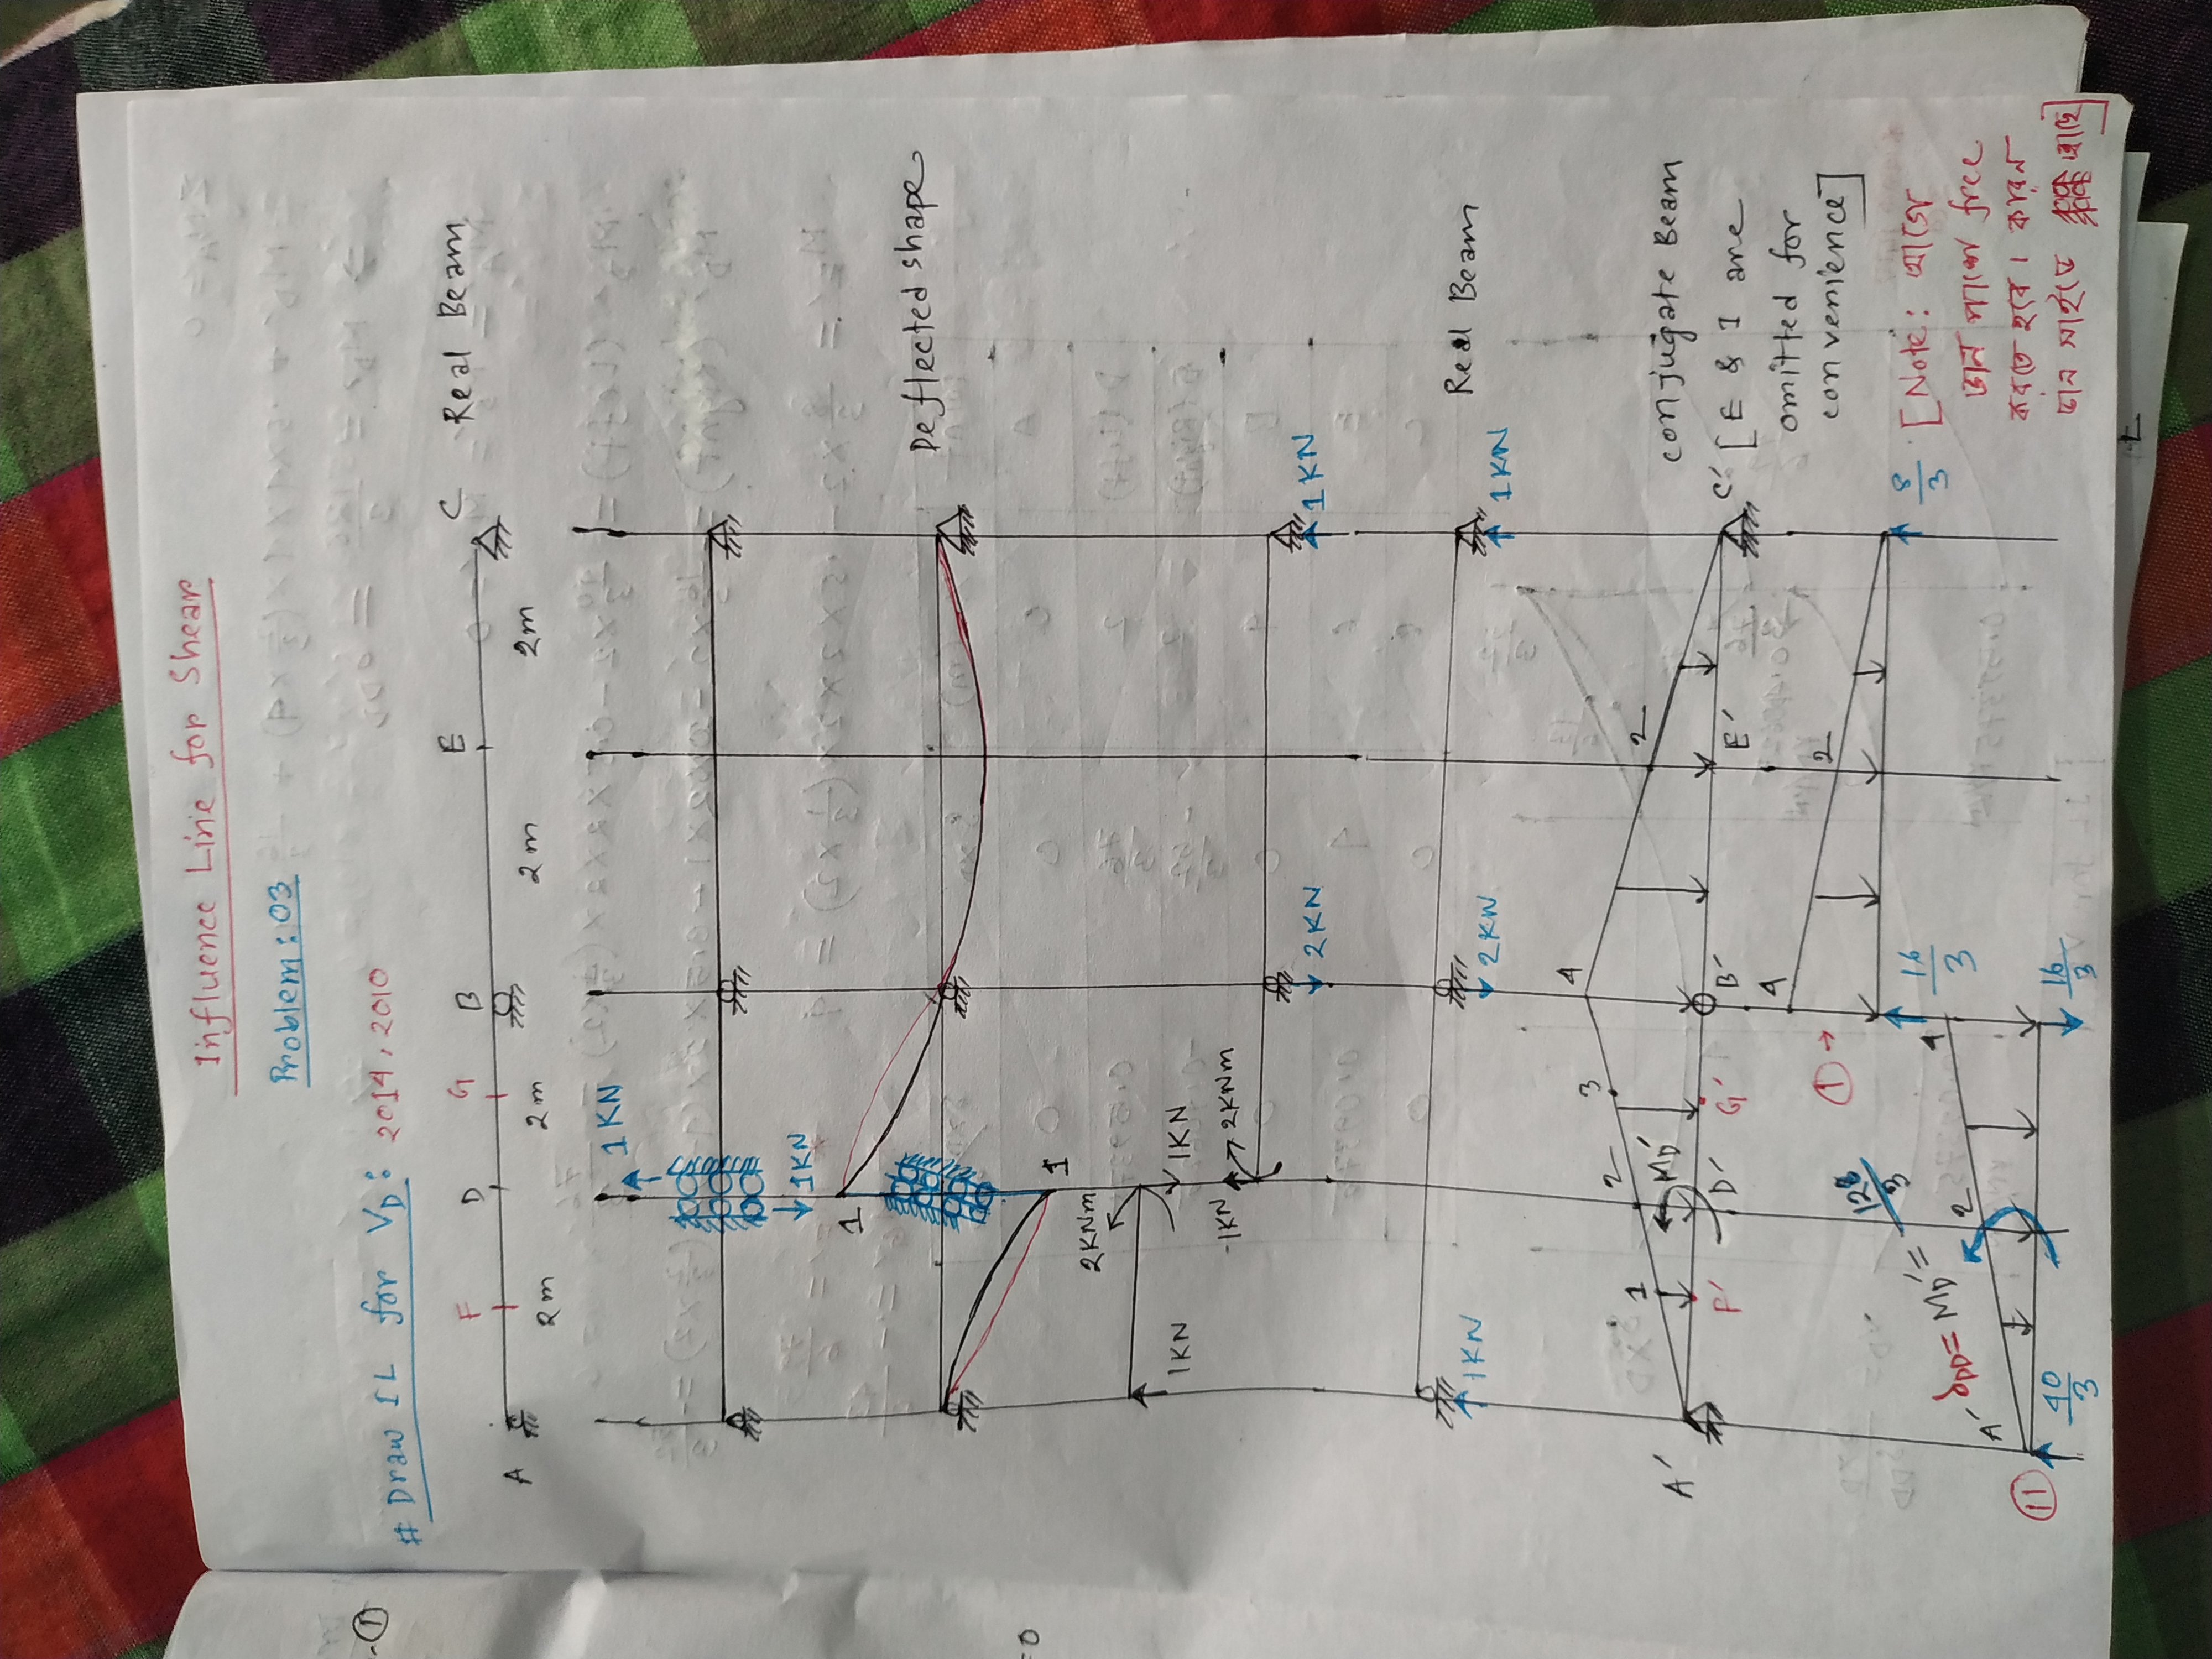 Influence Line for Shear
Problem: 03
# Draw IL for V_D: 2014, 2010
A F D G B E C Real Beam
2m 2m 2m 2m
1KN
1KN
1
Deflected shape
1
2KNm
1KN
1KN
-1KN
2KNm
2KN
1KN
Real Beam
1KN
2KN
1KN
conjugate Beam
[E & I are
omitted for
convenience]
A' 1 2 3 4 2 C'
F' M_D' D' G' B' E'
①→ 4 2
16/3 8/3
[Note: আগে
ডান পাশে free
করতে হবে।
δ_DD = M_D' = 128/3
⑪ A' 2 4
40/3 16/3
-①
=0